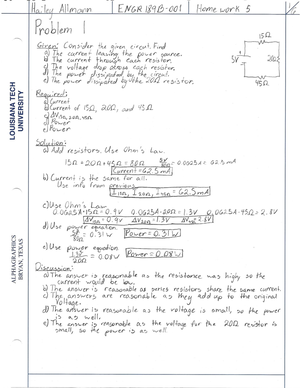 Hailey Allmann
ENGR 189B-001
Homework 5
Problem 1
Given: Consider the given circuit. Find
a) The current leaving the power source.
b) The current through each resistor.
c) The voltage drop across each resistor.
d) The power dissipated by the circuit.
e) The power dissipated by the 20Ω resistor.
15Ω
5V
20Ω
45Ω
Required:
a) Current
b) Current of 15Ω, 20Ω, and 45Ω
d) Power
e) Power
Solution:
a) Add resistors. Use Ohm's Law.
15Ω+20Ω+45Ω=80Ω 5V/80Ω = 0.0625A = 62.5mA
Current = 62.5mA
b) Current is the same for all.
Use info from previous
= 62.5mA
c) Use Ohm's Law
0.0625A·15Ω=0.9V 0.0625A·20Ω=1.3V 0.0625A·45Ω=2.8V
d) Use power equation
= 0.31W Power=0.31W
e) Use power equation
= 0.08W Power=0.08W
Discussion:
a) The answer is reasonable as the resistance was high so the
current would be low.
b) The answer is reasonable as series resistors share the same current.
c) The answers are reasonable as they add up to the original
voltage.
d) The answer is reasonable as the voltage is small, so the power
is as well.
e) The answer is reasonable as the voltage for the 20Ω resistor is
small, so the power is as well
LOUISIANA TECH
UNIVERSITY
ALPHAGRAPHICS
BRYAN, TEXAS